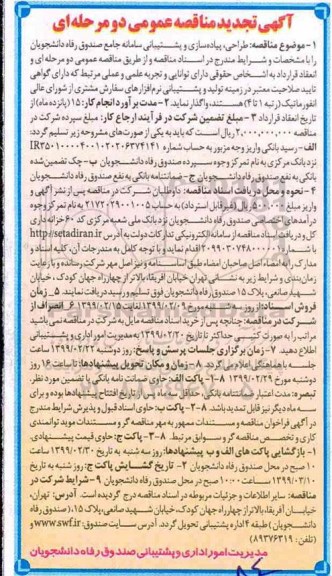 آگهی تجدید مناقصه عمومی دو مرحله ای
۱- موضوع مناقصه: طراحی، پیاده‌سازی و پشتیبانی سامانه جامع صندوق رفاه دانشجویان
را با مشخصات و شرایط مندرج در اسناد مناقصه و از طریق مناقصه عمومی دو مرحله ای و
انعقاد قرارداد به اشخاص حقوقی دارای توانایی و تجربه علمی و عملی مرتبط که دارای گواهی
تایید صلاحیت معتبر در زمینه تولید و پشتیبانی نرم‌افزارهای سفارش مشتری از شورای عالی
انفورماتیک (رتبه ۱ تا ۴) هستند، واگذار نماید. ۲- مدت برآورد انجام کار: ۱۵ (پانزده ماه) از
تاریخ انعقاد قرارداد ۳- مبلغ تضمین شرکت در فرآیند ارجاع کار: مبلغ سپرده شرکت در
مناقصه ۲,۰۰۰,۰۰۰,۰۰۰ ریال است که باید به یکی از صورت‌های مشروحه زیر تسلیم گردد:
الف- رسید بانکی واریز وجه مزبور به حساب شماره
نزد بانک مرکزی به نام تمرکز وجوه سپرده صندوق رفاه دانشجویان ب- چک تضمین شده
بانکی به نفع صندوق رفاه دانشجویان ج- ضمانتنامه بانکی به نفع صندوق رفاه دانشجویان
۴- نحوه و محل دریافت اسناد مناقصه: داوطلبان شرکت در مناقصه پس از نشر آگهی و
واریز مبلغ ریال (غیرقابل استرداد) به حساب ۲۱۷۲۰۲۹۰۰۱۰۰۵ به نام تمرکز وجوه
درآمدهای اختصاصی صندوق رفاه دانشجویان نزد بانک ملی شعبه مرکزی کد ۶۰ خزانه داری
کل و دریافت اسناد مناقصه از سامانه الکترونیکی تدارکات دولت به آدرس http://setadiran.ir
با شماره اقدام نماید و با توجه کامل به مندرجات آن، کلیه اسناد و
مدارک را به امضاء اصل صاحبان امضاء طبق اساسنامه و نیز اصل مهر شرکت رسانده و با رعایت
زمان‌بندی و شرایط زیر به نشانی تهران خیابان آفریقا، بالاتر از چهارراه جهان کودک، خیابان
شهید صانعی، پلاک ۱۵ صندوق رفاه دانشجویان فوق تسلیم و رسید دریافت نمایند. ۵- زمان
فروش اسناد: از روز سه شنبه مورخ ۱۳۹۹/۰۲/۰۹ لغایت ۱۳۹۹/۰۲/۱۵ ۶- انصراف از
شرکت در مناقصه: چنانچه پس از خرید اسناد مناقصه مایل به شرکت در مناقصه نمی باشید
مراتب را به صورت کتبی حداکثر تا تاریخ به مدیریت امور اداری و پشتیبانی
اطلاع دهید. ۷- زمان برگزاری جلسات پرسش و پاسخ: روز دوشنبه ۱۳۹۹/۰۲/۲۲ ساعت
جلسه با هماهنگی اعلام می گردد. ۸- زمان و مکان تحویل پیشنهادها: تا ساعت ۱۶ روز
دوشنبه مورخ ۱۳۹۹/۰۲/۲۹ ۱-۸- پاکت الف: حاوی ضمانت نامه بانکی یا تضمین مورد نظر.
تبصره: مدت اعتبار ضمانتنامه بانکی از تاریخ افتتاح پیشنهادها بوده و برای
سه ماه دیگر نیز قابل تمدید باشد. ۲-۸- پاکت ب: حاوی اسناد قبول و پذیرش شرایط مندرج
در آگهی فراخوان مناقصه و مستندات ممهور به مهر مناقصه گر و مستندات موید توانمندی
کاری و تخصص مناقصه گر و سوابق مرتبط. ۳-۸- پاکت ج: حاوی قیمت پیشنهادی.
۱- بازگشایی پاکت های الف و ب پیشنهادها: روز سه شنبه به تاریخ ۱۳۹۹/۰۲/۳۰ ساعت
۱۰ صبح در محل صندوق رفاه دانشجویان ۲- تاریخ گشایش پاکت ج: روز شنبه به تاریخ
۱۳۹۹/۰۳/۱۰ ساعت ۱۰:۰۰ صبح در محل صندوق رفاه دانشجویان ۹- شرایط شرکت در
مناقصه: سایر اطلاعات و جزئیات مربوطه در اسناد مناقصه درج گردیده است. آدرس: تهران،
خیابان آفریقا، بالاتر از چهارراه جهان کودک، خیابان شهید صانعی، پلاک ۱۵، (صندوق رفاه
دانشجویان) طبقه ۴ اداره پشتیبانی تحویل گردد. آدرس سایت صندوق: www.swf.ir و
(تلفن: ۸۹۳۷۶۳۱۹)
مدیریت امور اداری و پشتیبانی صندوق رفاه دانشجویان